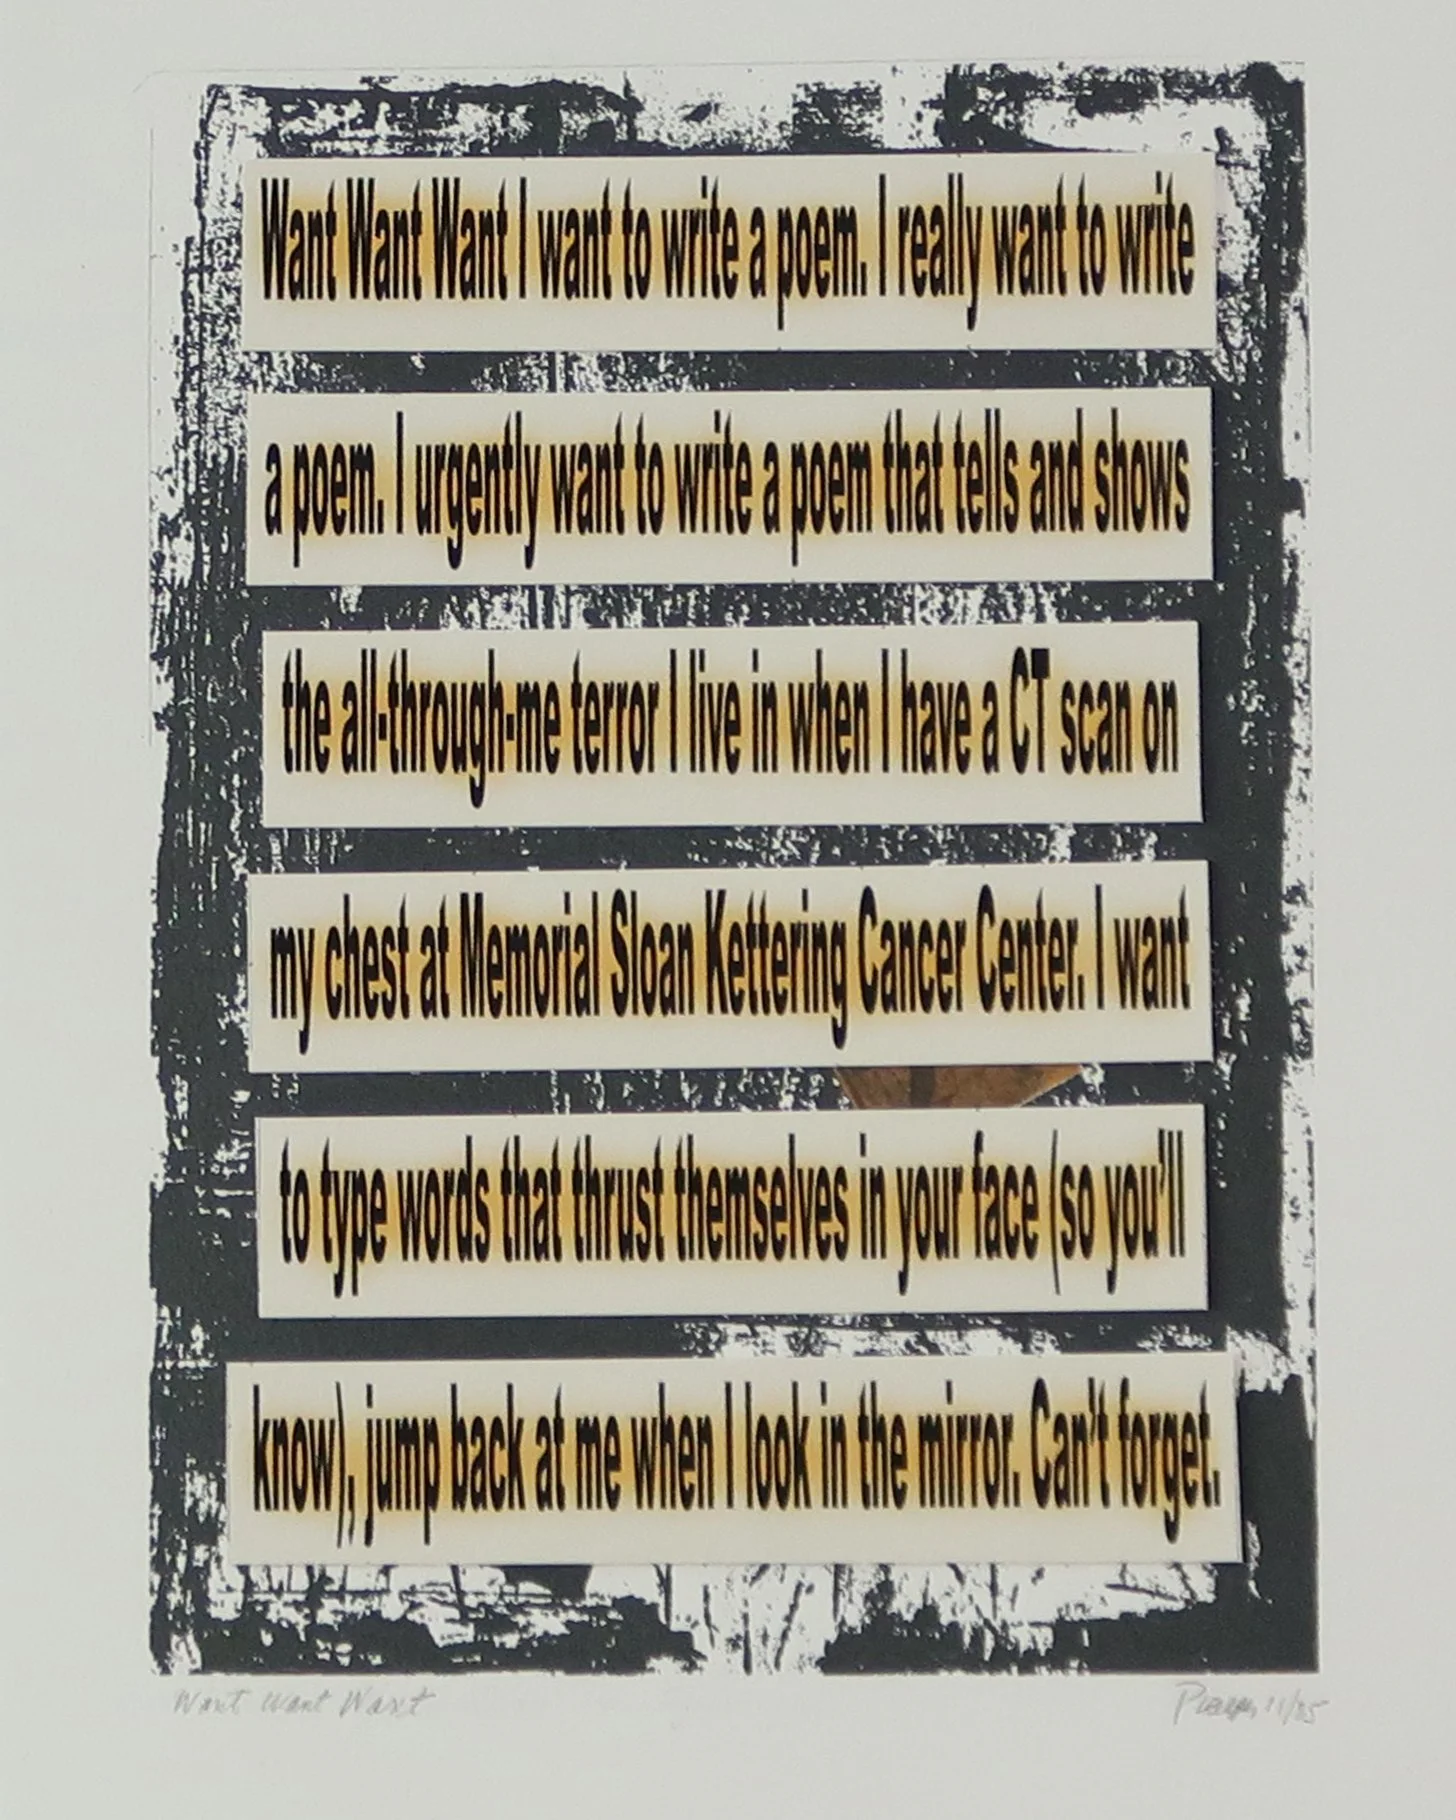 Want Want Want I want to write a poem. I really want to write
a poem. I urgently want to write a poem that tells and shows
the all-through-me terror I live in when I have a CT scan on
my chest at Memorial Sloan Kettering Cancer Center. I want
to type words that thrust themselves in your face (so you'll
know), jump back at me when I look in the mirror. Can't forget.
Want Want Want